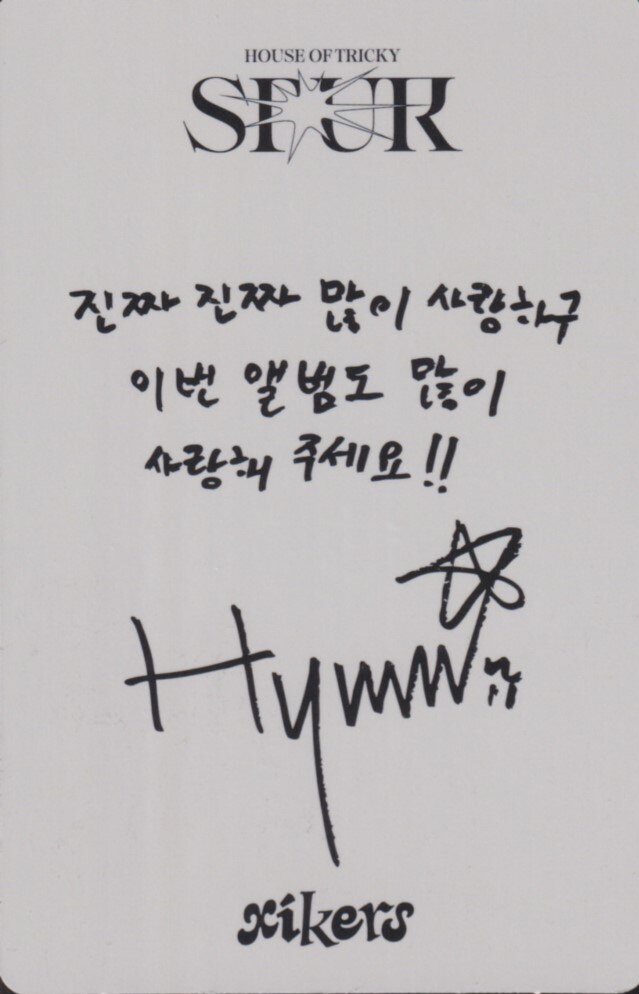 HOUSE OF TRICKY
SPUR
진짜 진짜 많이 사랑하구
이번 앨범도 많이
사랑해 주세요!!
xikers